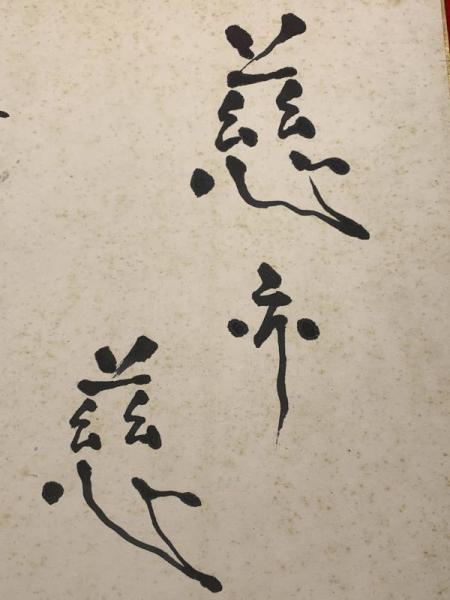 慈亦
慈